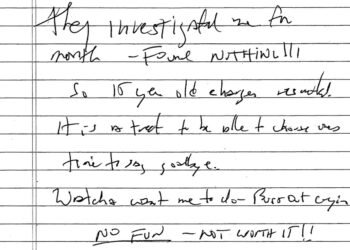 They investigated me for
month — Found NOTHING!!!
So 15 year old charges resulted.
It is a treat to be able to choose ones
time to say goodbye.
Watcha want me to do — Burst out cryin
NO FUN — NOT WORTH IT!!